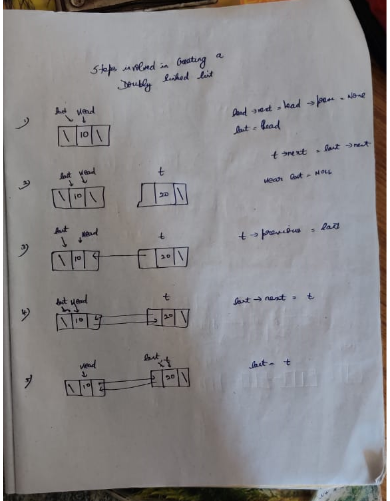 Steps involved in Creating a
Doubly linked list
1)
last head
\ 10 \
head → next = head → prev = NONE
last = head
t → next = last → next
2)
last head
\ 10 \
t
20 \
near last = NULL
3)
last head
\ 10
t
20 \
t → previous = last
4)
last head
\ 10
t
20 \
last → next = t
5)
head
\ 10
last t
20 \
last = t